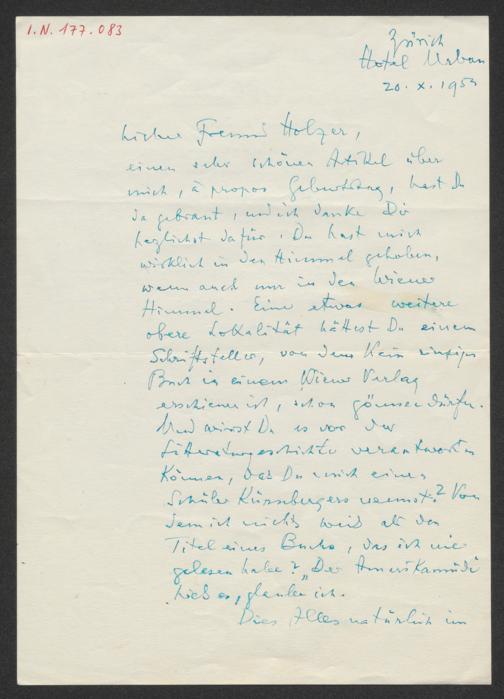 I.N. 177.083
Zürich
Hotel Urban
20. X. 195
Lieber Freund Holzer,
einen sehr schönen Artikel über
mich, à propos Geburtstag, hast Du
da gebraut, und ich danke Dir
herzlichst dafür. Du hast mich
wirklich in den Himmel gehoben,
wenn auch nur in den Wiener
Himmel. Eine etwas weitere
obere Lokalität hättest Du einem
Schriftsteller, von dem kein einziges
Buch in einem Wiener Verlag
erschienen ist, schon gönnen dürfen.
Und wirst Du es vor der
Literaturgeschichte verantworten
können, dass Du mich einen
Schüler Kürnbergers nennst? Von
dem ich nichts weiss als den
Titel eines Buchs, das ich nie
gelesen habe? „Der Amerikamüde
hiess es, glaube ich.
Dies Alles natürlich im